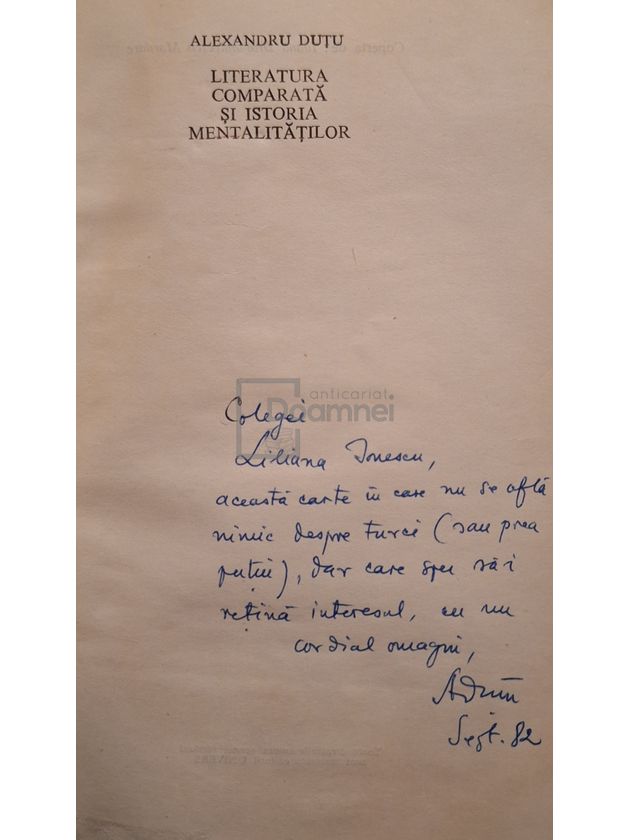 ALEXANDRU DUȚU
LITERATURA
COMPARATĂ
ȘI ISTORIA
MENTALITĂȚILOR
anticariat
Doamnei
Colegei
Liliana Ionescu,
această carte în care nu se află
nimic despre turci (sau prea
puțin), dar care sper să-i
rețină interesul, cu un
cordial omagiu,
Sept. 82